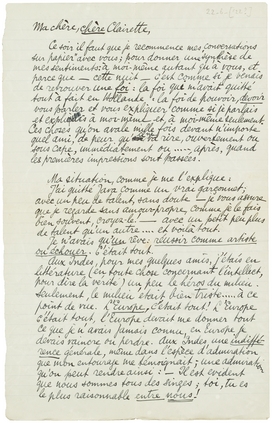 Ma chère, chère Clairette,
Ce soir il faut que je recommence mes conversations
sur papier avec vous pour donner une synthèse de
mes sentiments: à moi-même autant qu'à vous, et,
parce que — cette nuit — c'est comme si je venais
de retrouver une foi: la foi que m'avait quitté
tout à fait en Hollande: la foi de pouvoir, devoir
vous parler et vous expliquer comme si je parlais
et expliquais à moi-même et, à moi-même seulement.
Ces choses qu'on avale mille fois devant n'importe
quel ami, de peur qu'il va dire, ouvertement ou
sous cape, immédiatement ou ....., après, quand
les premières impressions sont passées.
Ma situation, comme je me l'explique:
J'ai quitté Java comme un vrai garçonnet;
avec un peu de talent, sans doute — je vous assure
que je regarde sans amour-propre, comme je le fais
bien souvent, croyez-le — avec un petit peu plus
de talent qu'un autre .... et voilà tout.
Je n'avais qu'un rêve: réussir comme artiste
ou échouer. C'était tout.
Aux Indes, pour mes quelques amis, j'étais en
littérature (en toute chose concernant l'intellect,
pour dire la vérité) un peu le héros du milieu.
Seulement, le milieu était bien triste à ce
point de vue. Et l'Europe, c'était tout! L'Europe
c'était tout, l'Europe devait me donner tout
ce que je n'avais jamais connu, en Europe je
devais vaincre ou perdre. Aux Indes, une indiffé-
rence générale, même dans l'espèce d'admiration
que mon entourage me témoignait; une admiration
qu'on peut rendre ainsi: — Il est évident
que nous sommes tous des singes; toi, tu es
le plus raisonnable entre nous!